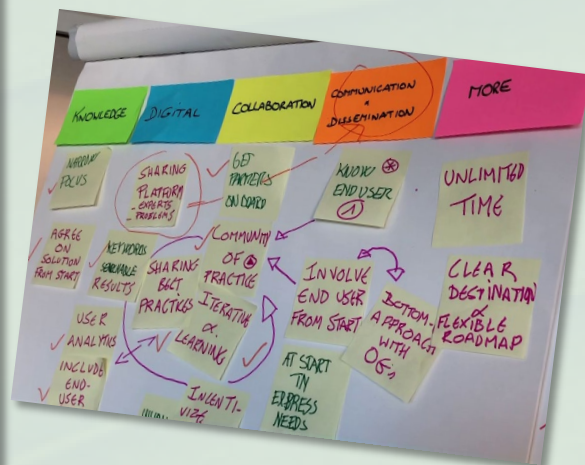 KNOWLEDGE
DIGITAL
COLLABORATION
COMMUNICATION
&
DISSEMINATION
MORE
FOCUS
AGREE
ON
SOLUTION
FROM START
KEYWORDS
SEARCHABLE
RESULTS
USER
ANALYTICS
INCLUDE
END-
USER
SHARING
PLATFORM
- EXPERTS
- PROBLEMS
SHARING
BEST
PRACTICES
GET
PARTNERS
ON BOARD
COMMUNITY
OF
PRACTICE
ITERATIVE
LEARNING
INCENTI-
VIZE
KNOW
END USER
1
INVOLVE
END USER
FROM START
BOTTOM-
APPROACH
WITH
AT START
ADDRESS
NEEDS
UNLIMITED
TIME
CLEAR
DESTINATION
&
FLEXIBLE
ROADMAP